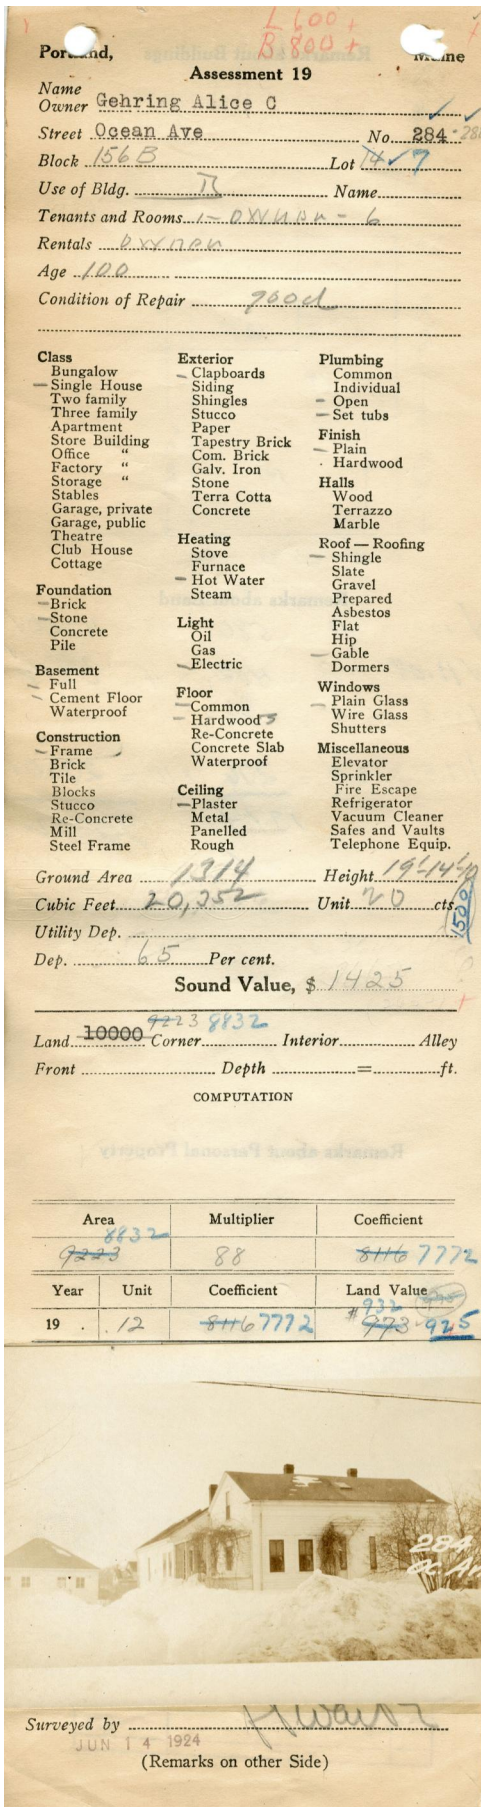 L 600 +
B 800 +
Portland, Maine
Assessment 19
Name
Owner Gehring Alice C
Street Ocean Ave No. 284
Block 156 B Lot 14 7
Use of Bldg. Name
Tenants and Rooms 1 - owner - 6
Rentals owner
Age 100
Condition of Repair good
Class
Bungalow
Single House
Two family
Three family
Apartment
Store Building
Office "
Factory "
Storage "
Stables
Garage, private
Garage, public
Theatre
Club House
Cottage
Foundation
Brick
Stone
Concrete
Pile
Basement
Full
Cement Floor
Waterproof
Construction
Frame
Brick
Tile
Blocks
Stucco
Re-Concrete
Mill
Steel Frame
Exterior
Clapboards
Siding
Shingles
Stucco
Paper
Tapestry Brick
Com. Brick
Galv. Iron
Stone
Terra Cotta
Concrete
Heating
Stove
Furnace
Hot Water
Steam
Light
Oil
Gas
Electric
Floor
Common
Hardwood 3
Re-Concrete
Concrete Slab
Waterproof
Ceiling
Plaster
Metal
Panelled
Rough
Plumbing
Common
Individual
Open
Set tubs
Finish
Plain
Hardwood
Halls
Wood
Terrazzo
Marble
Roof — Roofing
Shingle
Slate
Gravel
Prepared
Asbestos
Flat
Hip
Gable
Dormers
Windows
Plain Glass
Wire Glass
Shutters
Miscellaneous
Elevator
Sprinkler
Fire Escape
Refrigerator
Vacuum Cleaner
Safes and Vaults
Telephone Equip.
Ground Area 1314 Height 19'-14'-10
Cubic Feet 20,352 Unit 20 cts.
1500
Utility Dep.
Dep. 65 Per cent.
Sound Value, $ 1425
9223 8832
Land 10000 Corner Interior Alley
Front Depth = ft.
COMPUTATION
Area Multiplier Coefficient
8832
9223 88 8116 7772
Year Unit Coefficient Land Value
932 975
19 .12 8116 7772 $ 973 925
284
Oc. Av
Surveyed by
JUN 14 1924
(Remarks on other Side)